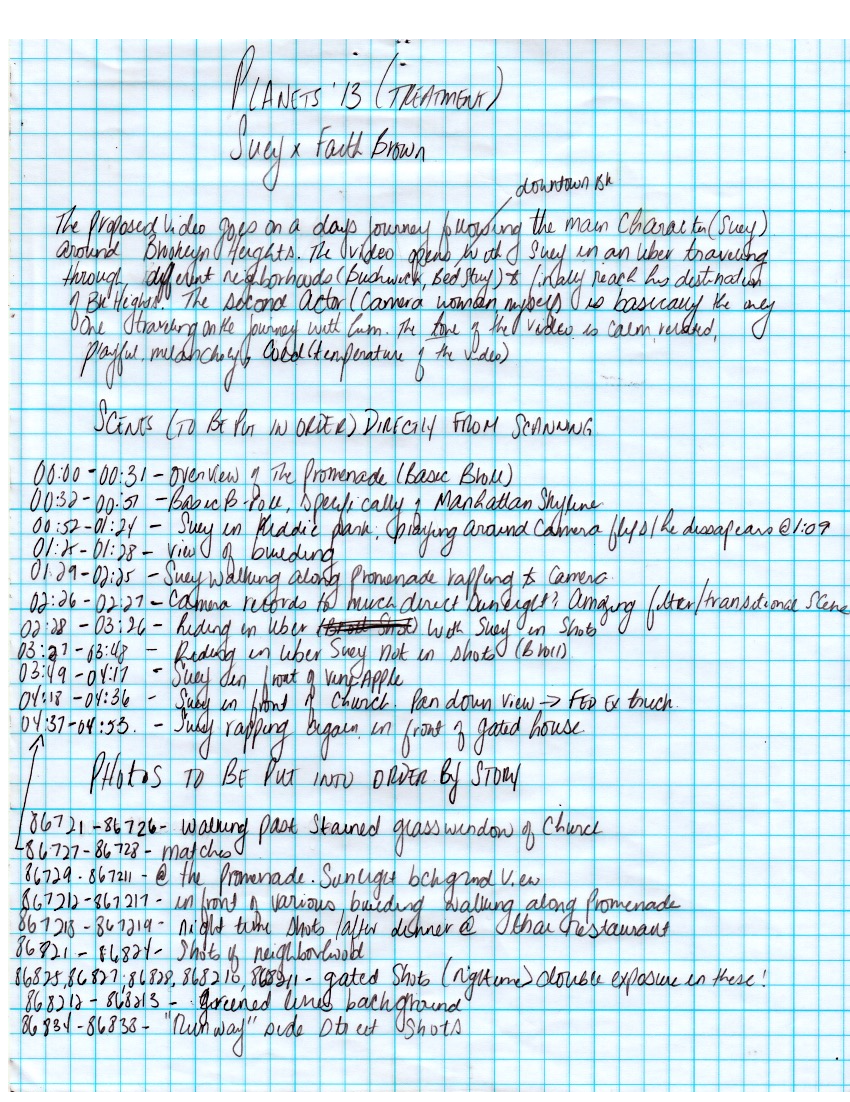 PLANETS '13 (TREATMENT)
Suey x Faith Brown
downtown Bk
The proposed video goes on a days journey following the main Character (Suey)
around Brooklyn Heights. The video opens with Suey in an Uber traveling
through different neighborhoods (Bushwick, Bed Stuy) & finally reach his destination
of Bk Heights. The second Actor (Camera woman myself) is basically the only
One traveling on the journey with him. The tone of the video is calm, relaxed,
playful, melancholy, Cold (temperature of the video)
SCENES (TO BE PUT IN ORDER) DIRECTLY FROM SCANNING
00:00-00:31 - overview of The Promenade (Basic Broll)
00:32-00:51 - Basic B-roll, specifically of Manhattan Skyline
00:52-01:24 - Suey in Kiddie park, playing around camera flips/he dissapears @1:09
01:25-01:28 - view of building
01:29-02:25 - Suey walking along Promenade rapping to Camera
02:26-02:27 - Camera records to much direct Sunlight? Amazing filter/transitional Scene
02:28-03:26 - Riding in Uber with Suey in Shots
03:27-03:48 - Riding in Uber Suey not in shots (Broll)
03:49-04:17 - Suey in front of Apple
04:18-04:36 - Suey in front of Church. Pan down view → FED EX truck
04:37-04:53. - Suey rapping again in front of gated house
PHOTOS TO BE PUT INTO ORDER BY STORY
86721-86726- walking past Stained glass window of Church
86727-86728 - matches
86729-867211- @ the Promenade. Sunlight bckgrnd View
867212-867217- in front of various building walking along Promenade
867218-867219- night time shots /after dinner @ thai restaurant
86821 - 86824- Shots of neighborhood
86825,86827,86828,868210,868211- gated Shots (nightime) double exposure in these!
868212-868213- greened lines background
86834-86838- "Runway" side Street Shots